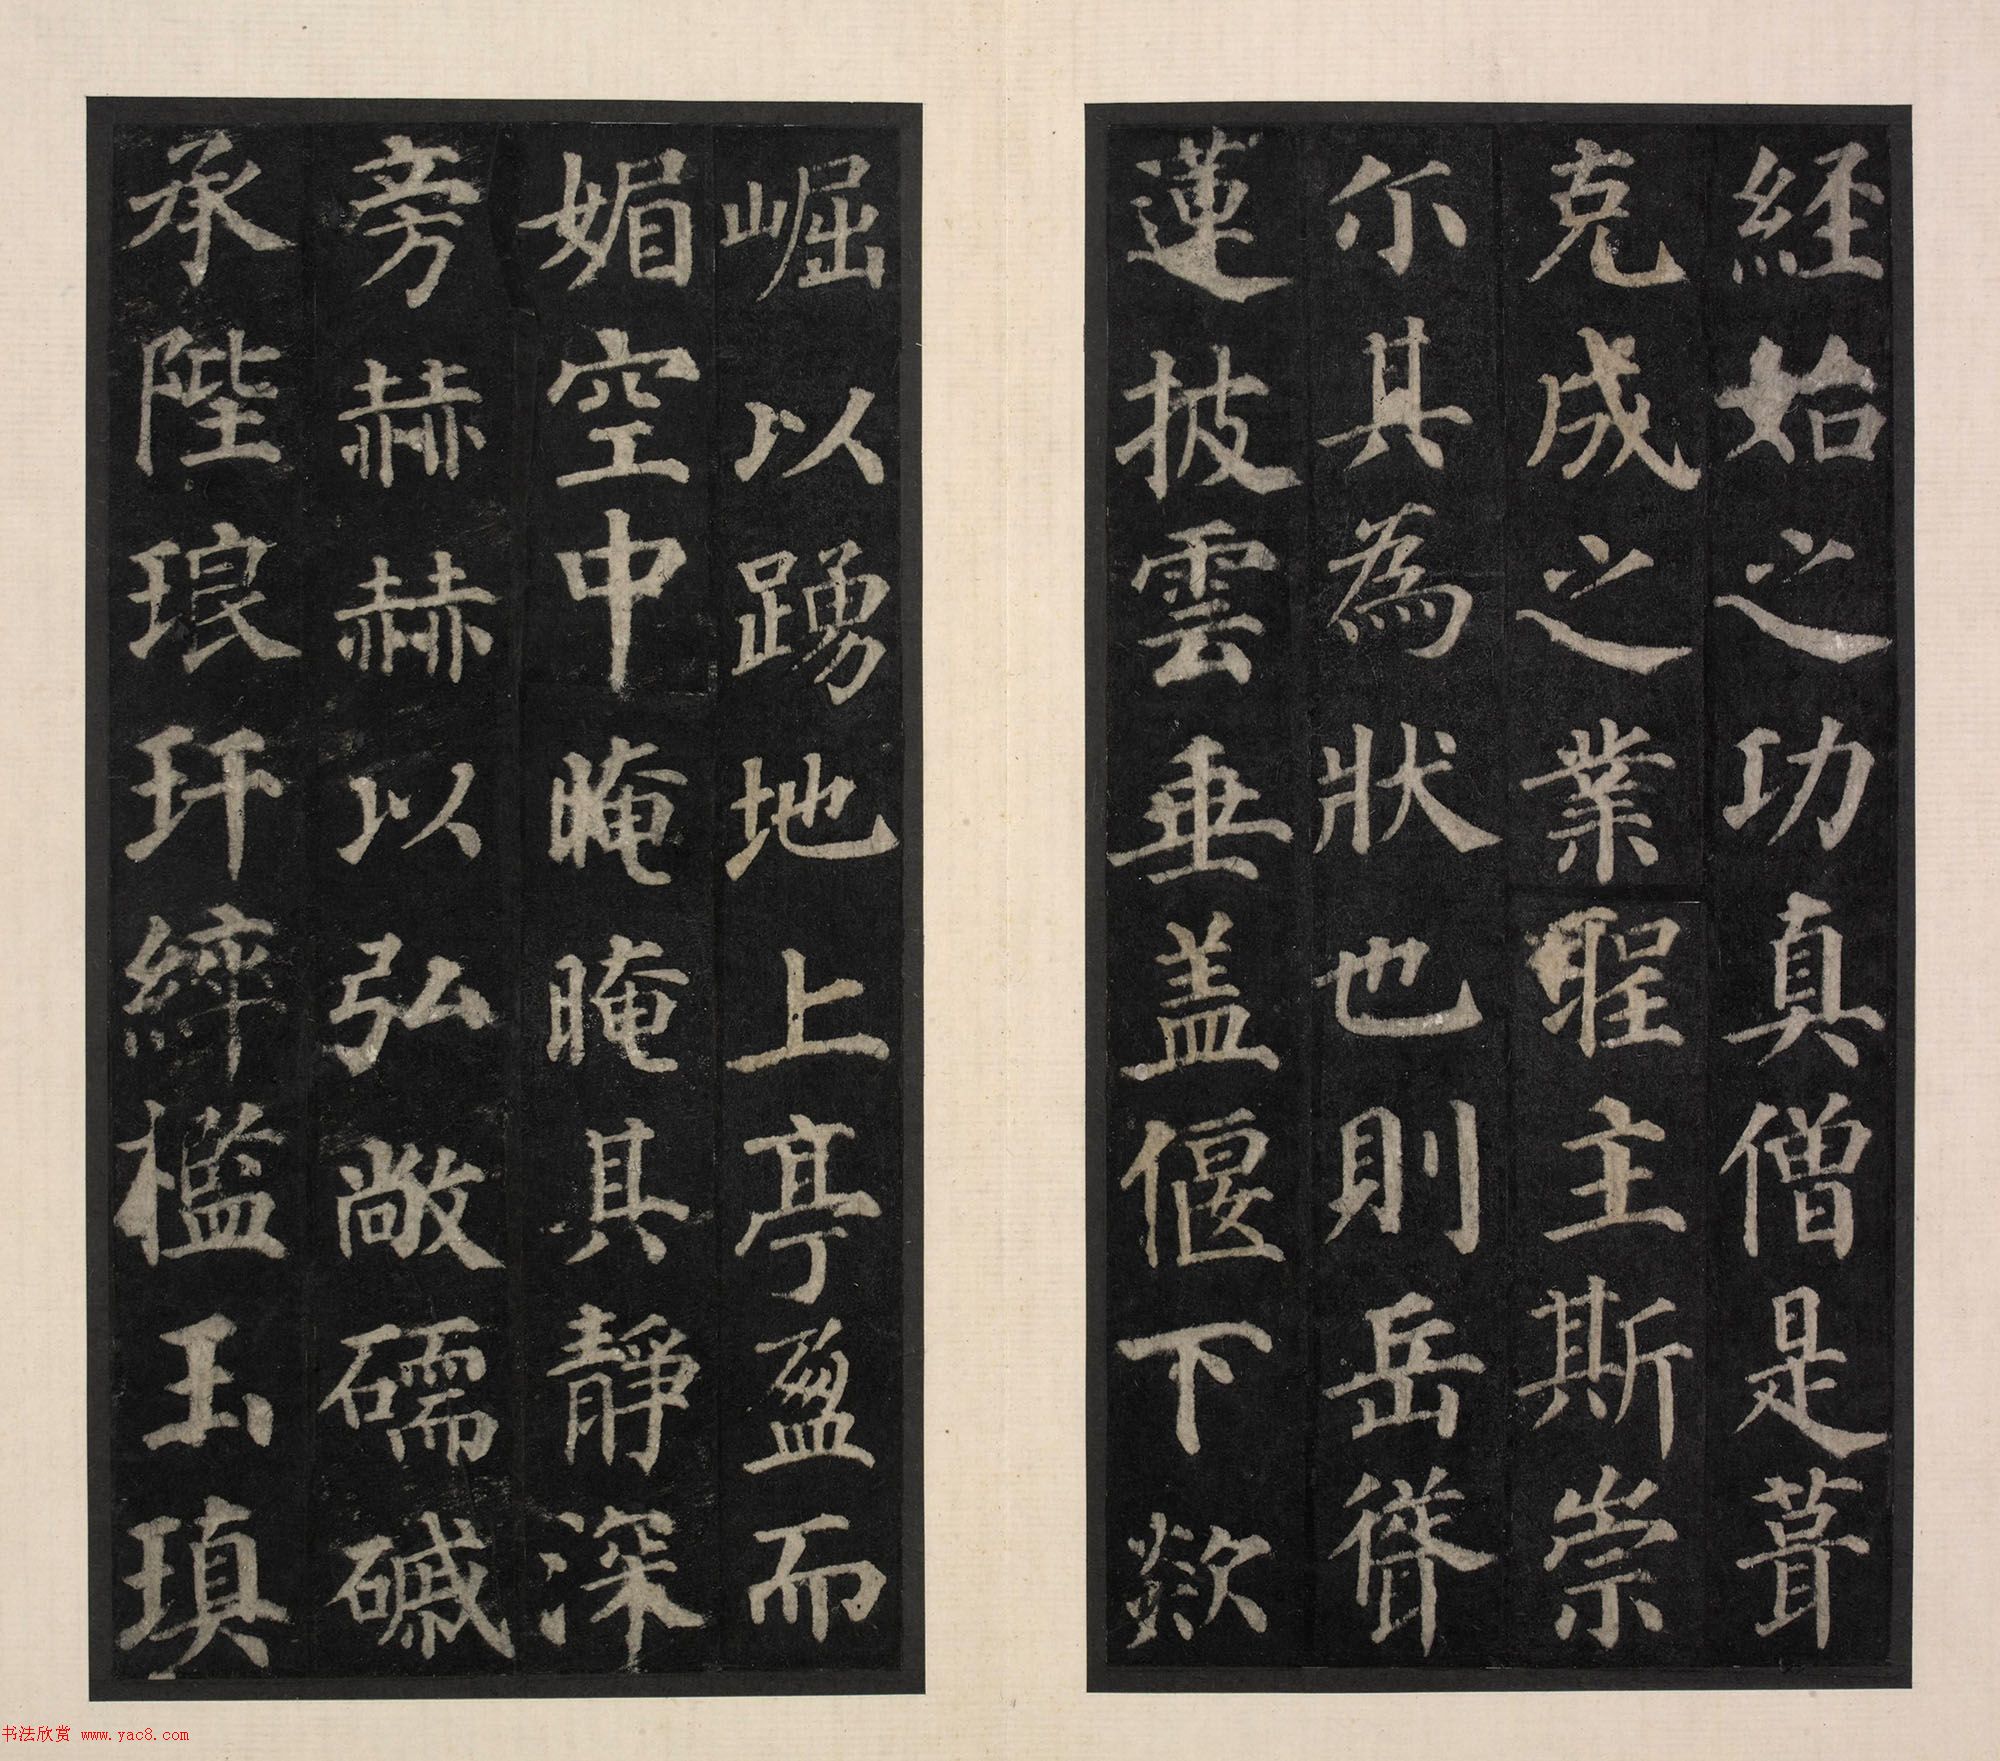 経始之功真僧是葺
克成之業聖主斯崇
尒其為状也則岳聳
蓮披雲垂盖偃下欻
崛以踴地上亭盈而
媚空中晻晻其静深
旁赫赫以弘敞礝碱
承陛琅玕綷檻玉瑱
书法欣赏 www.yac8.com